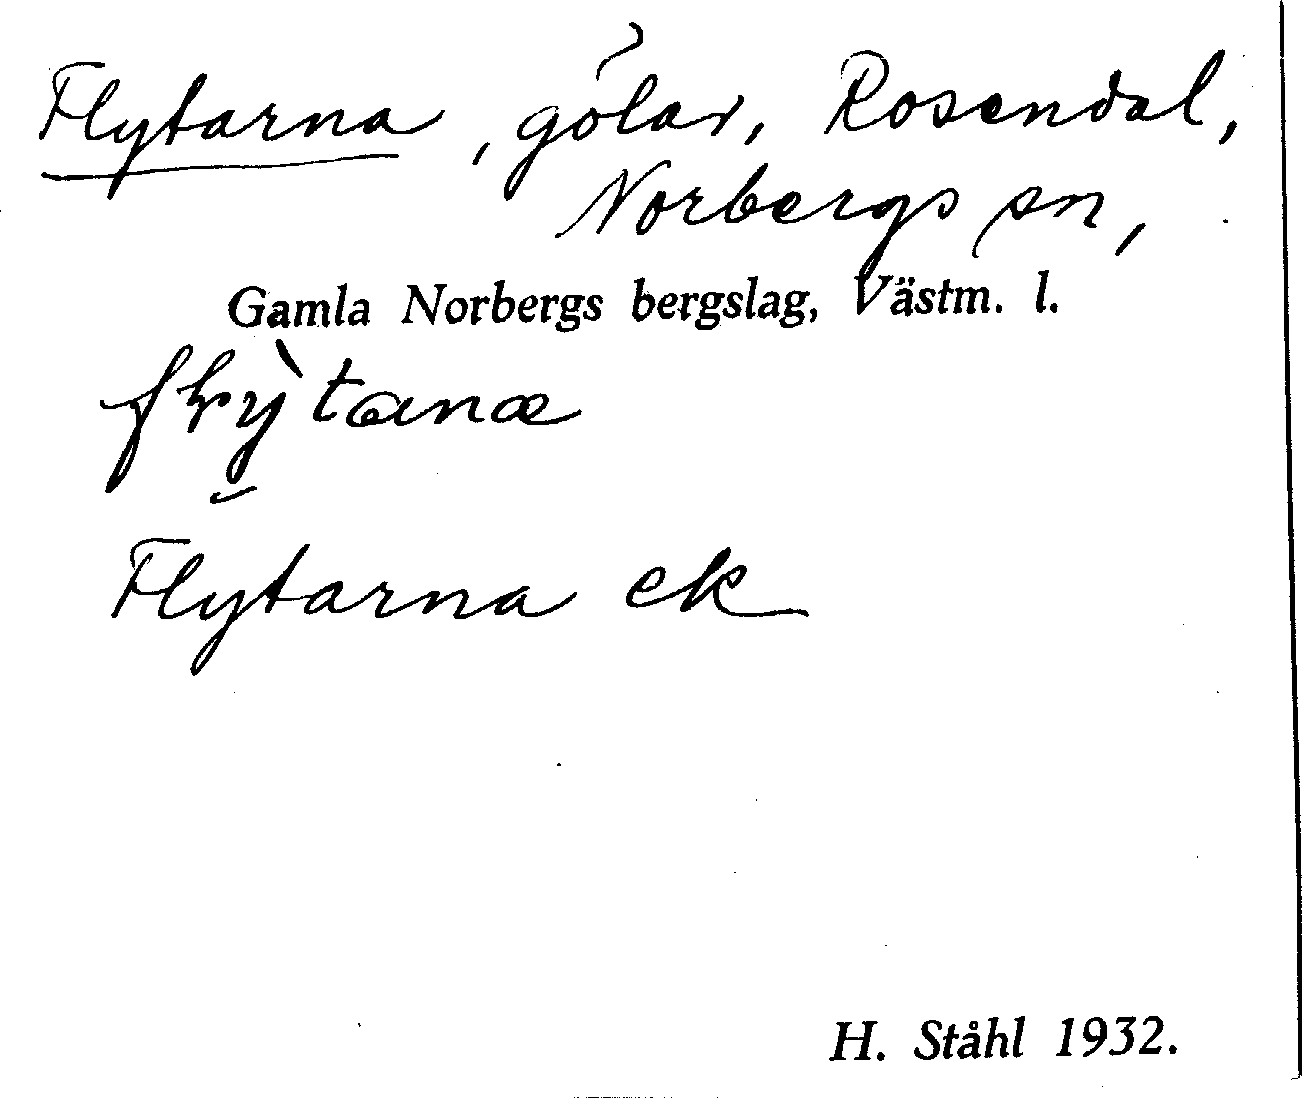 Flytarna, gölar, Rosendal,
Norbergs sn,
Gamla Norbergs bergslag, Västm. l.
Flytarna ek
H. Ståhl 1932.